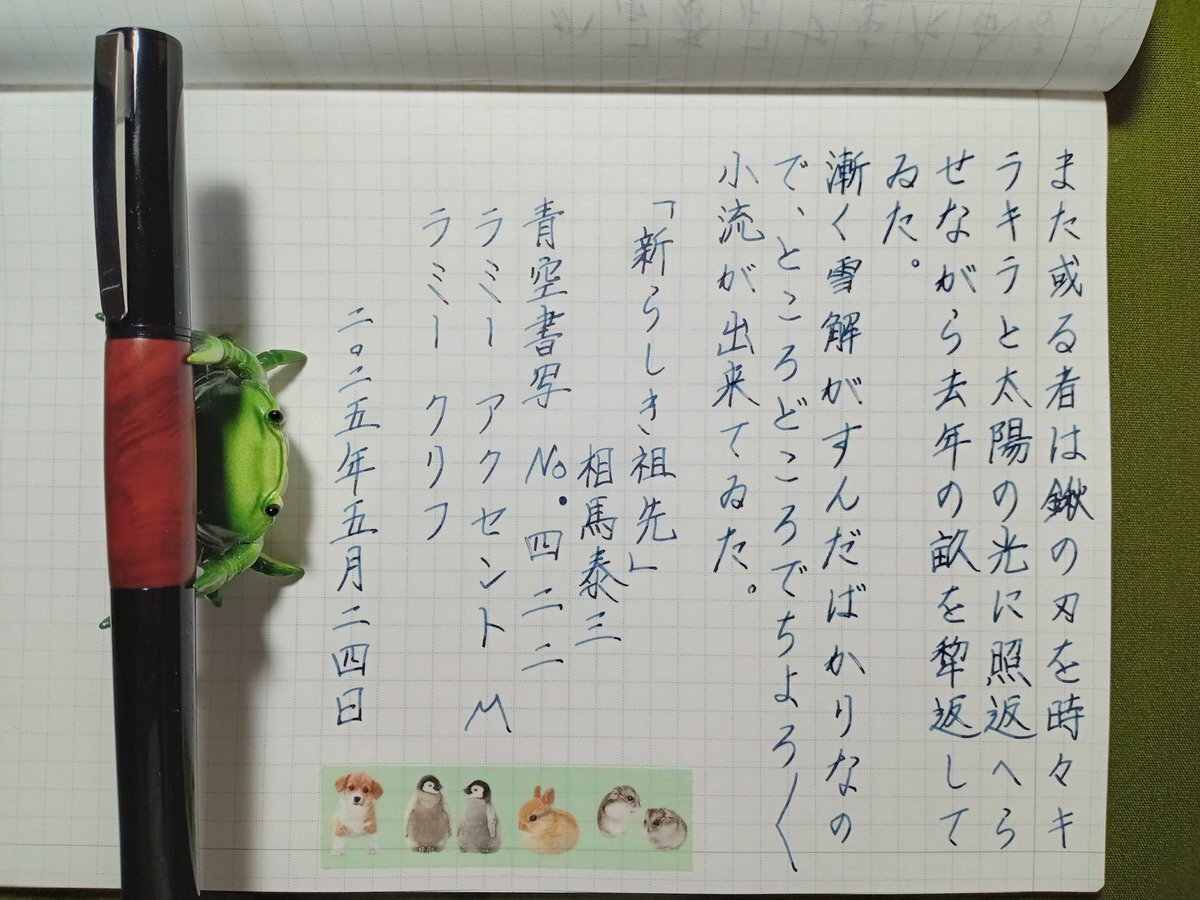 また或る者は鍬の刃を時々キ
ラキラと太陽の光に照返へら
せながら去年の畝を犂返して
ゐた。
漸く雪解がすんだばかりなの
で、ところどころでちよろ〱
小流が出来てゐた。
「新らしき祖先」
相馬泰三
青空書写 No.四二二
ラミー アクセント M
ラミー クリフ
二〇二五年五月二四日